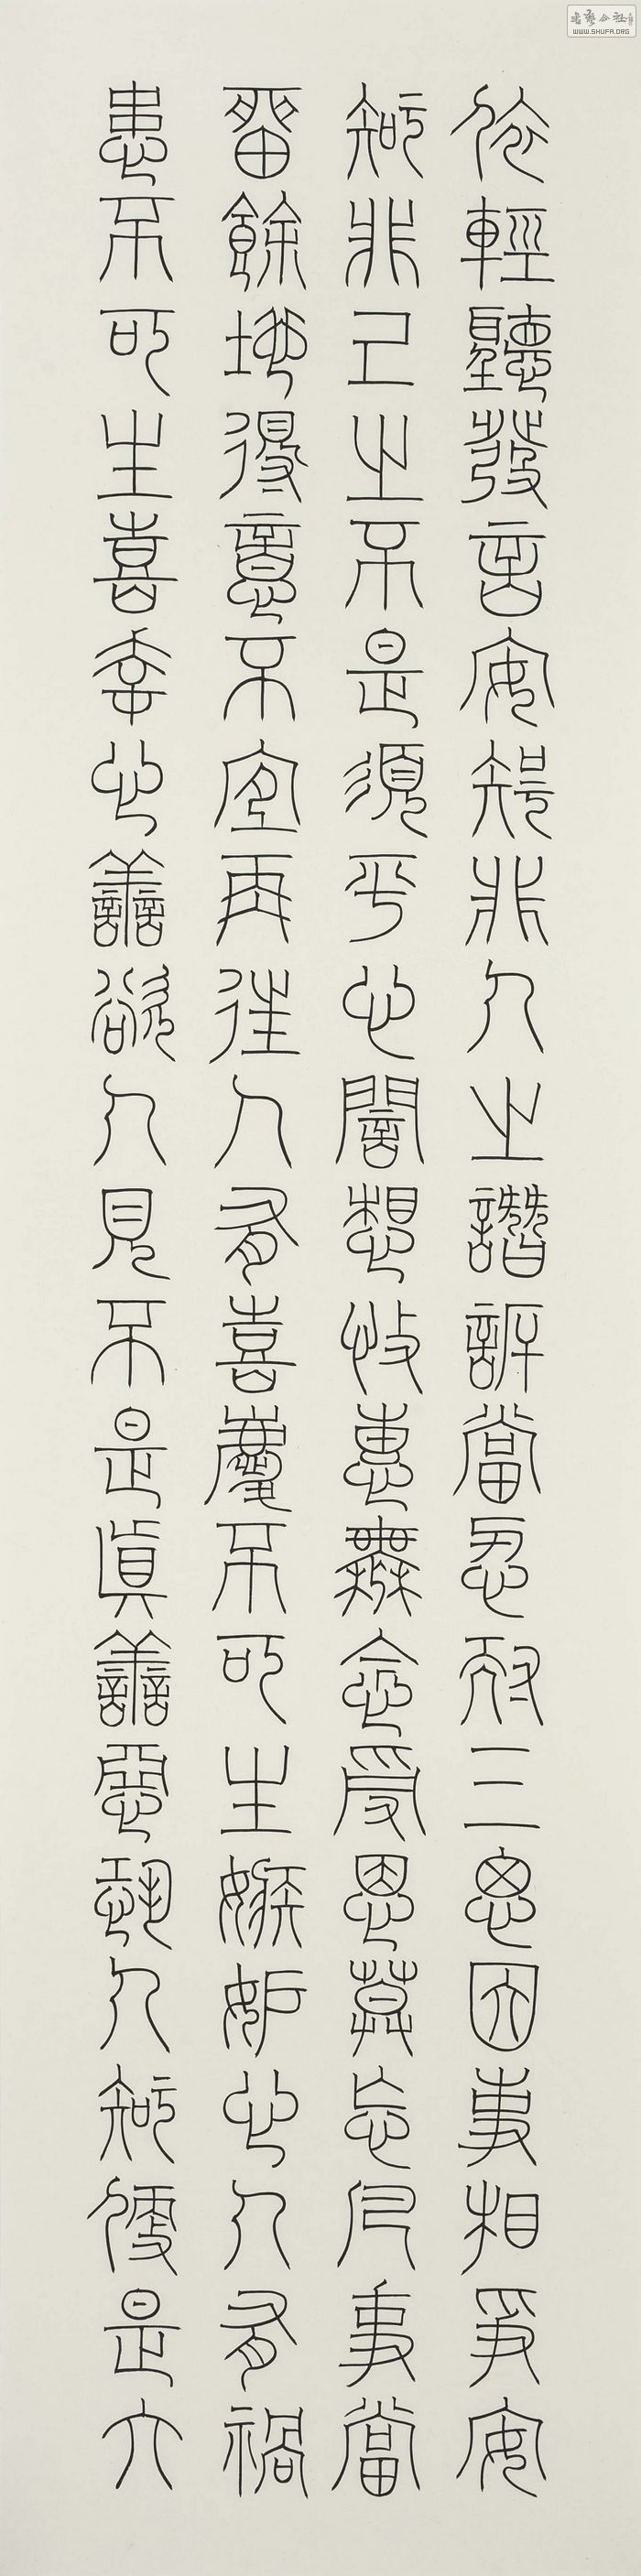 依輕聽發言安知非人之譖訴當忍耐三思因事相爭安
知非己之不是須平心闇想施惠無念受恩莫忘凡事當
留餘地得意不宜再往人有喜慶不可生嫉妒心人有禍
患不可生喜幸心善欲人見不是真善惡恐人知便是大
書藝公社
WWW.SHUFA.ORG